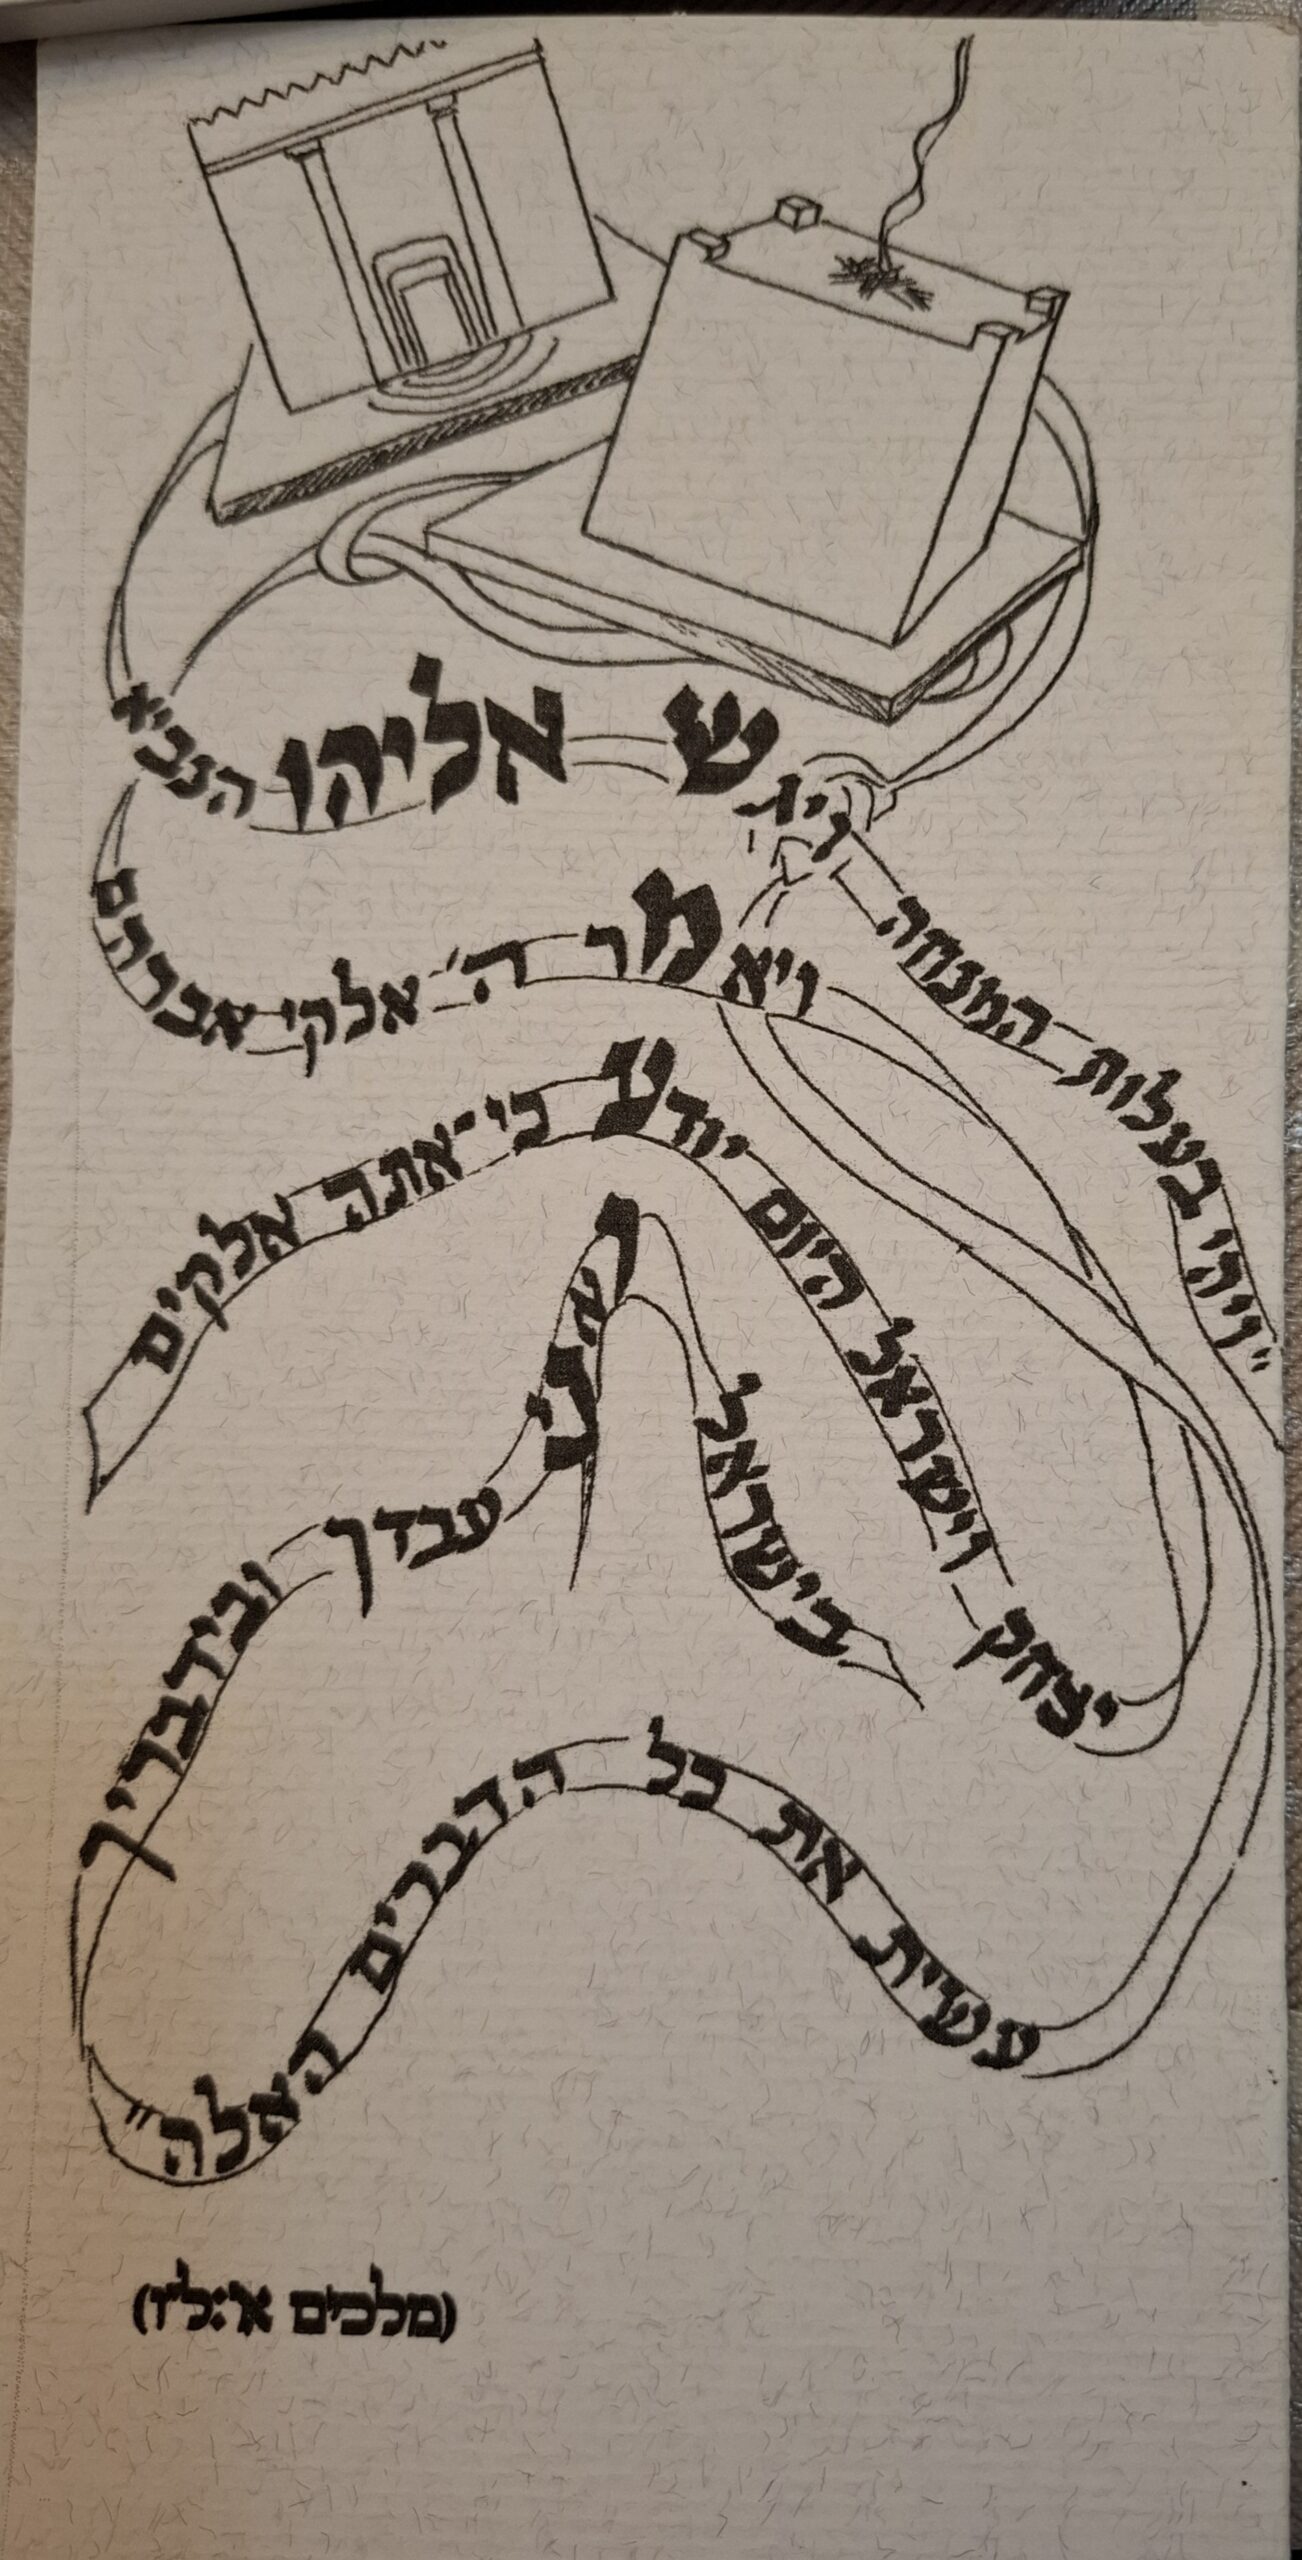 "ויהי בעלות המנחה
ויגש אליהו הנביא
ויאמר ה' אלקי אברהם
יצחק וישראל היום יודע כי-אתה אלקים
בישראל ואני עבדך ובדבריך
עשית את כל הדברים האלה"
(מלכים א':ל"ז)